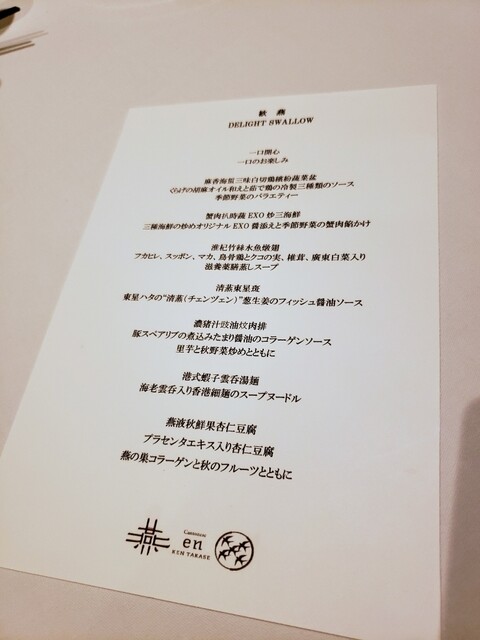 歓燕
DELIGHT SWALLOW
一口開心
一口のお楽しみ
麻香海蜇三味白切鶏繽紛蔬菜盆
くらげの胡麻オイル和えと茹で鶏の冷製三種類のソース
季節野菜のバラエティー
蟹肉扒時蔬EXO炒三海鮮
三種海鮮の炒めオリジナルEXO醤添えと季節野菜の蟹肉餡かけ
准杞竹絲水魚燉翅
フカヒレ、スッポン、マカ、烏骨鶏とクコの実、椎茸、廣東白菜入り
滋養薬膳蒸しスープ
清蒸東星斑
東星ハタの"清蒸(チェンヅェン)"葱生姜のフィッシュ醤油ソース
濃猪汁豉油炆肉排
豚スペアリブの煮込みたまり醤油のコラーゲンソース
里芋と秋野菜炒めとともに
港式蝦子雲呑湯麺
海老雲呑入り香港細麺のスープヌードル
燕液秋鮮果杏仁豆腐
プラセンタエキス入り杏仁豆腐
燕の巣コラーゲンと秋のフルーツとともに
燕
Cantonese
en
KEN TAKASE